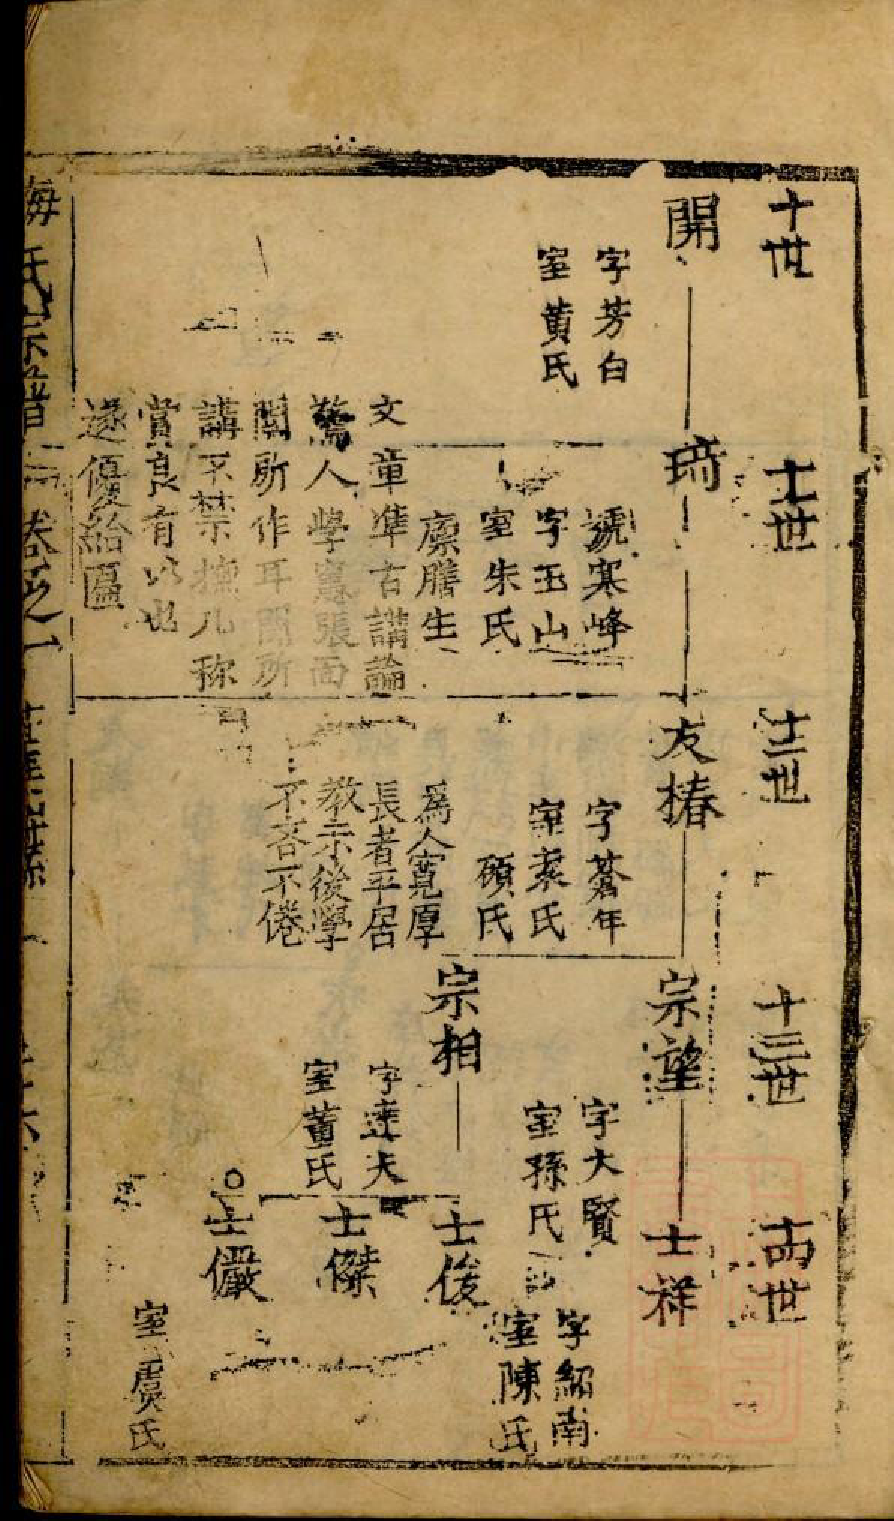 十世
開
字芳白
室黄氏
十一世
琦
號寒峰
字玉山
室朱氏
廪膳生
文章準古講論
驚人學憲張面
聞所作耳聞所
講不禁撫几称
賞良有以也
遂優給匾
十二世
友椿
字蒼年
室袁氏
碩氏
為人寬厚
長者平居
教示後學
不吝不倦
十三世
宗望
字大賢
室孫氏
宗相
字達夫
室董氏
十四世
士祥
字紹南
室陳氏
士俊
士傑
士儼
室虞氏
梅氏宗譜
卷之一